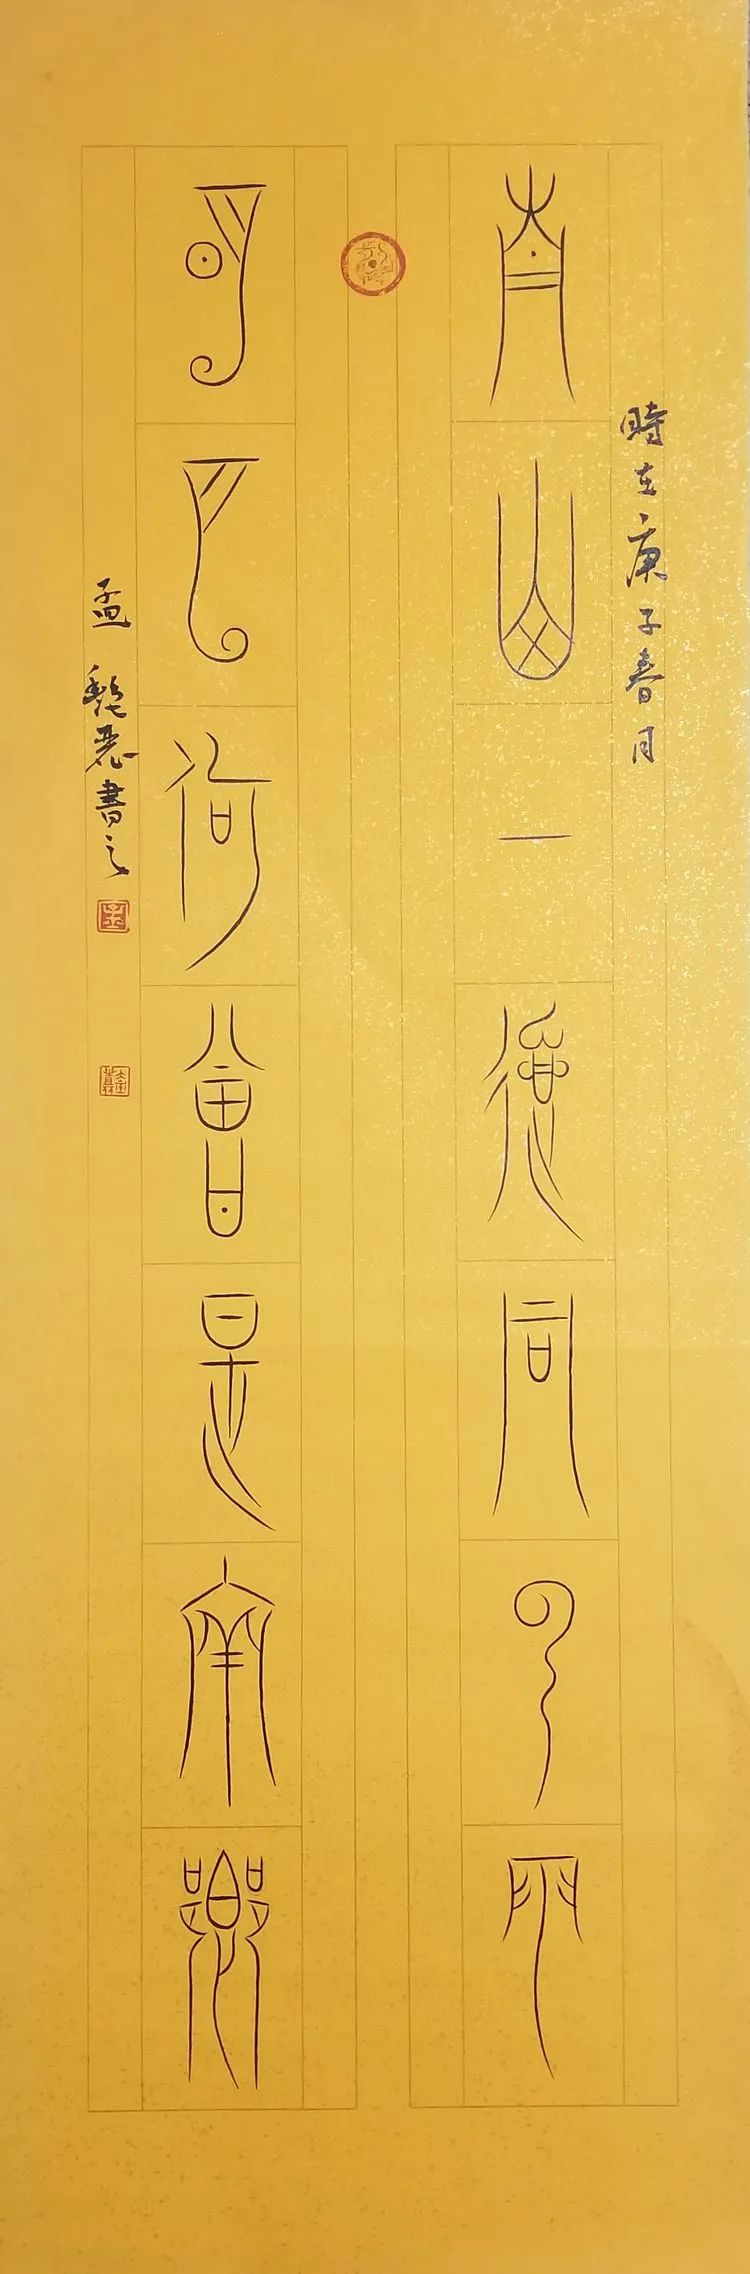 時在庚子春月
青山一道同云雨
明月何曾是兩鄉
孟書之